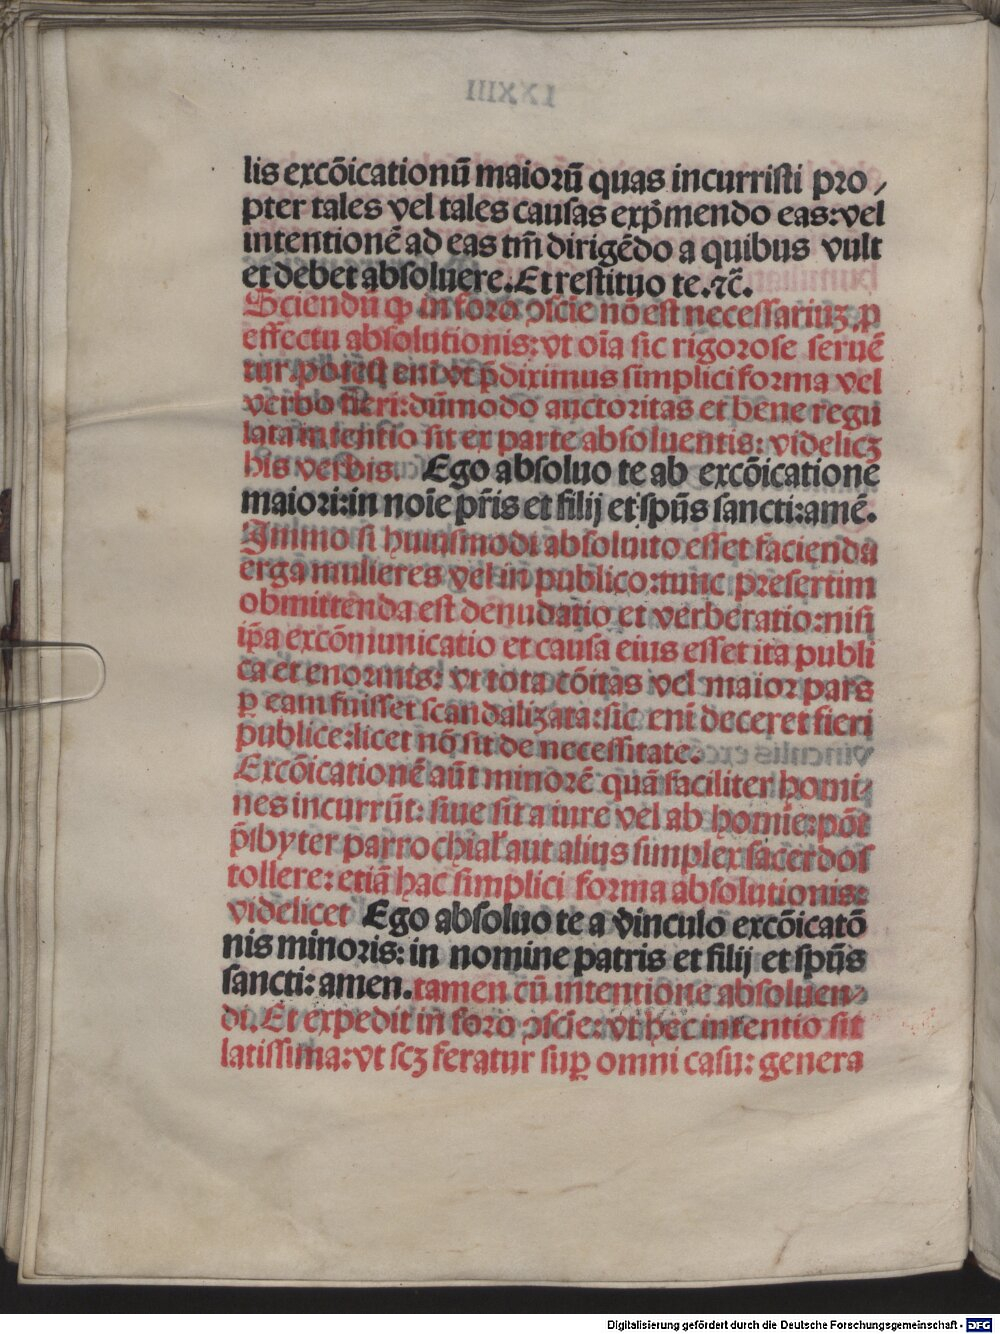 lis excōicationū maiorū quas incurristi pro⸗
pter tales vel tales causas exp̄mendo eas:vel
intentionē ad eas tm̄ dirigēdo a quibus vult
et debet absoluere.Et restituo te.⁊c̄.
Sciendū ꝙ in foro ↄscīe nō est necessariuꝫ ꝓ
effectu absolutionis: vt oīa sic rigorose seruē
tur.potest enī vt p̄diximus simplici forma vel
verbo fieri:dūmodo auctoritas et bene regu
lata intentio sit ex parte absoluentis: videlicꝫ
his verbis. Ego absoluo te ab excōicatione
maiori:in noīe pr̄is et filij et sp̄us sancti:amē.
Immo si huiusmodi absolutio esset facienda
erga mulieres vel in publico:tunc presertim
obmittenda est denudatio et verberatio:nisi
ip̄a excōmunicatio et causa eius esset ita publi
ca et enormis: vt tota cōitas vel maior pars
ꝑ eam fuisset scandalizata:sic enī deceret fieri
publice:licet nō sit de necessitate.
Excōicationē aūt minorē quā faciliter homi⸗
nes incurrūt: siue sit a iure vel ab homīe:pōt
p̄sbyter parrochial' aut alius simplex sacerdos
tollere: etiā hac simplici forma absolutionis:
videlicet Ego absoluo te a vinculo excōicatō
nis minoris: in nomine patris et filij et sp̄us
sancti: amen. tamen cū intentione absoluen⸗
di. Et expedit in foro ↄscīe: vt hec intentio sit
latissima: vt scꝫ feratur suꝑ omni casu: genera
Digitalisierung gefördert durch die Deutsche Forschungsgemeinschaft - DFG